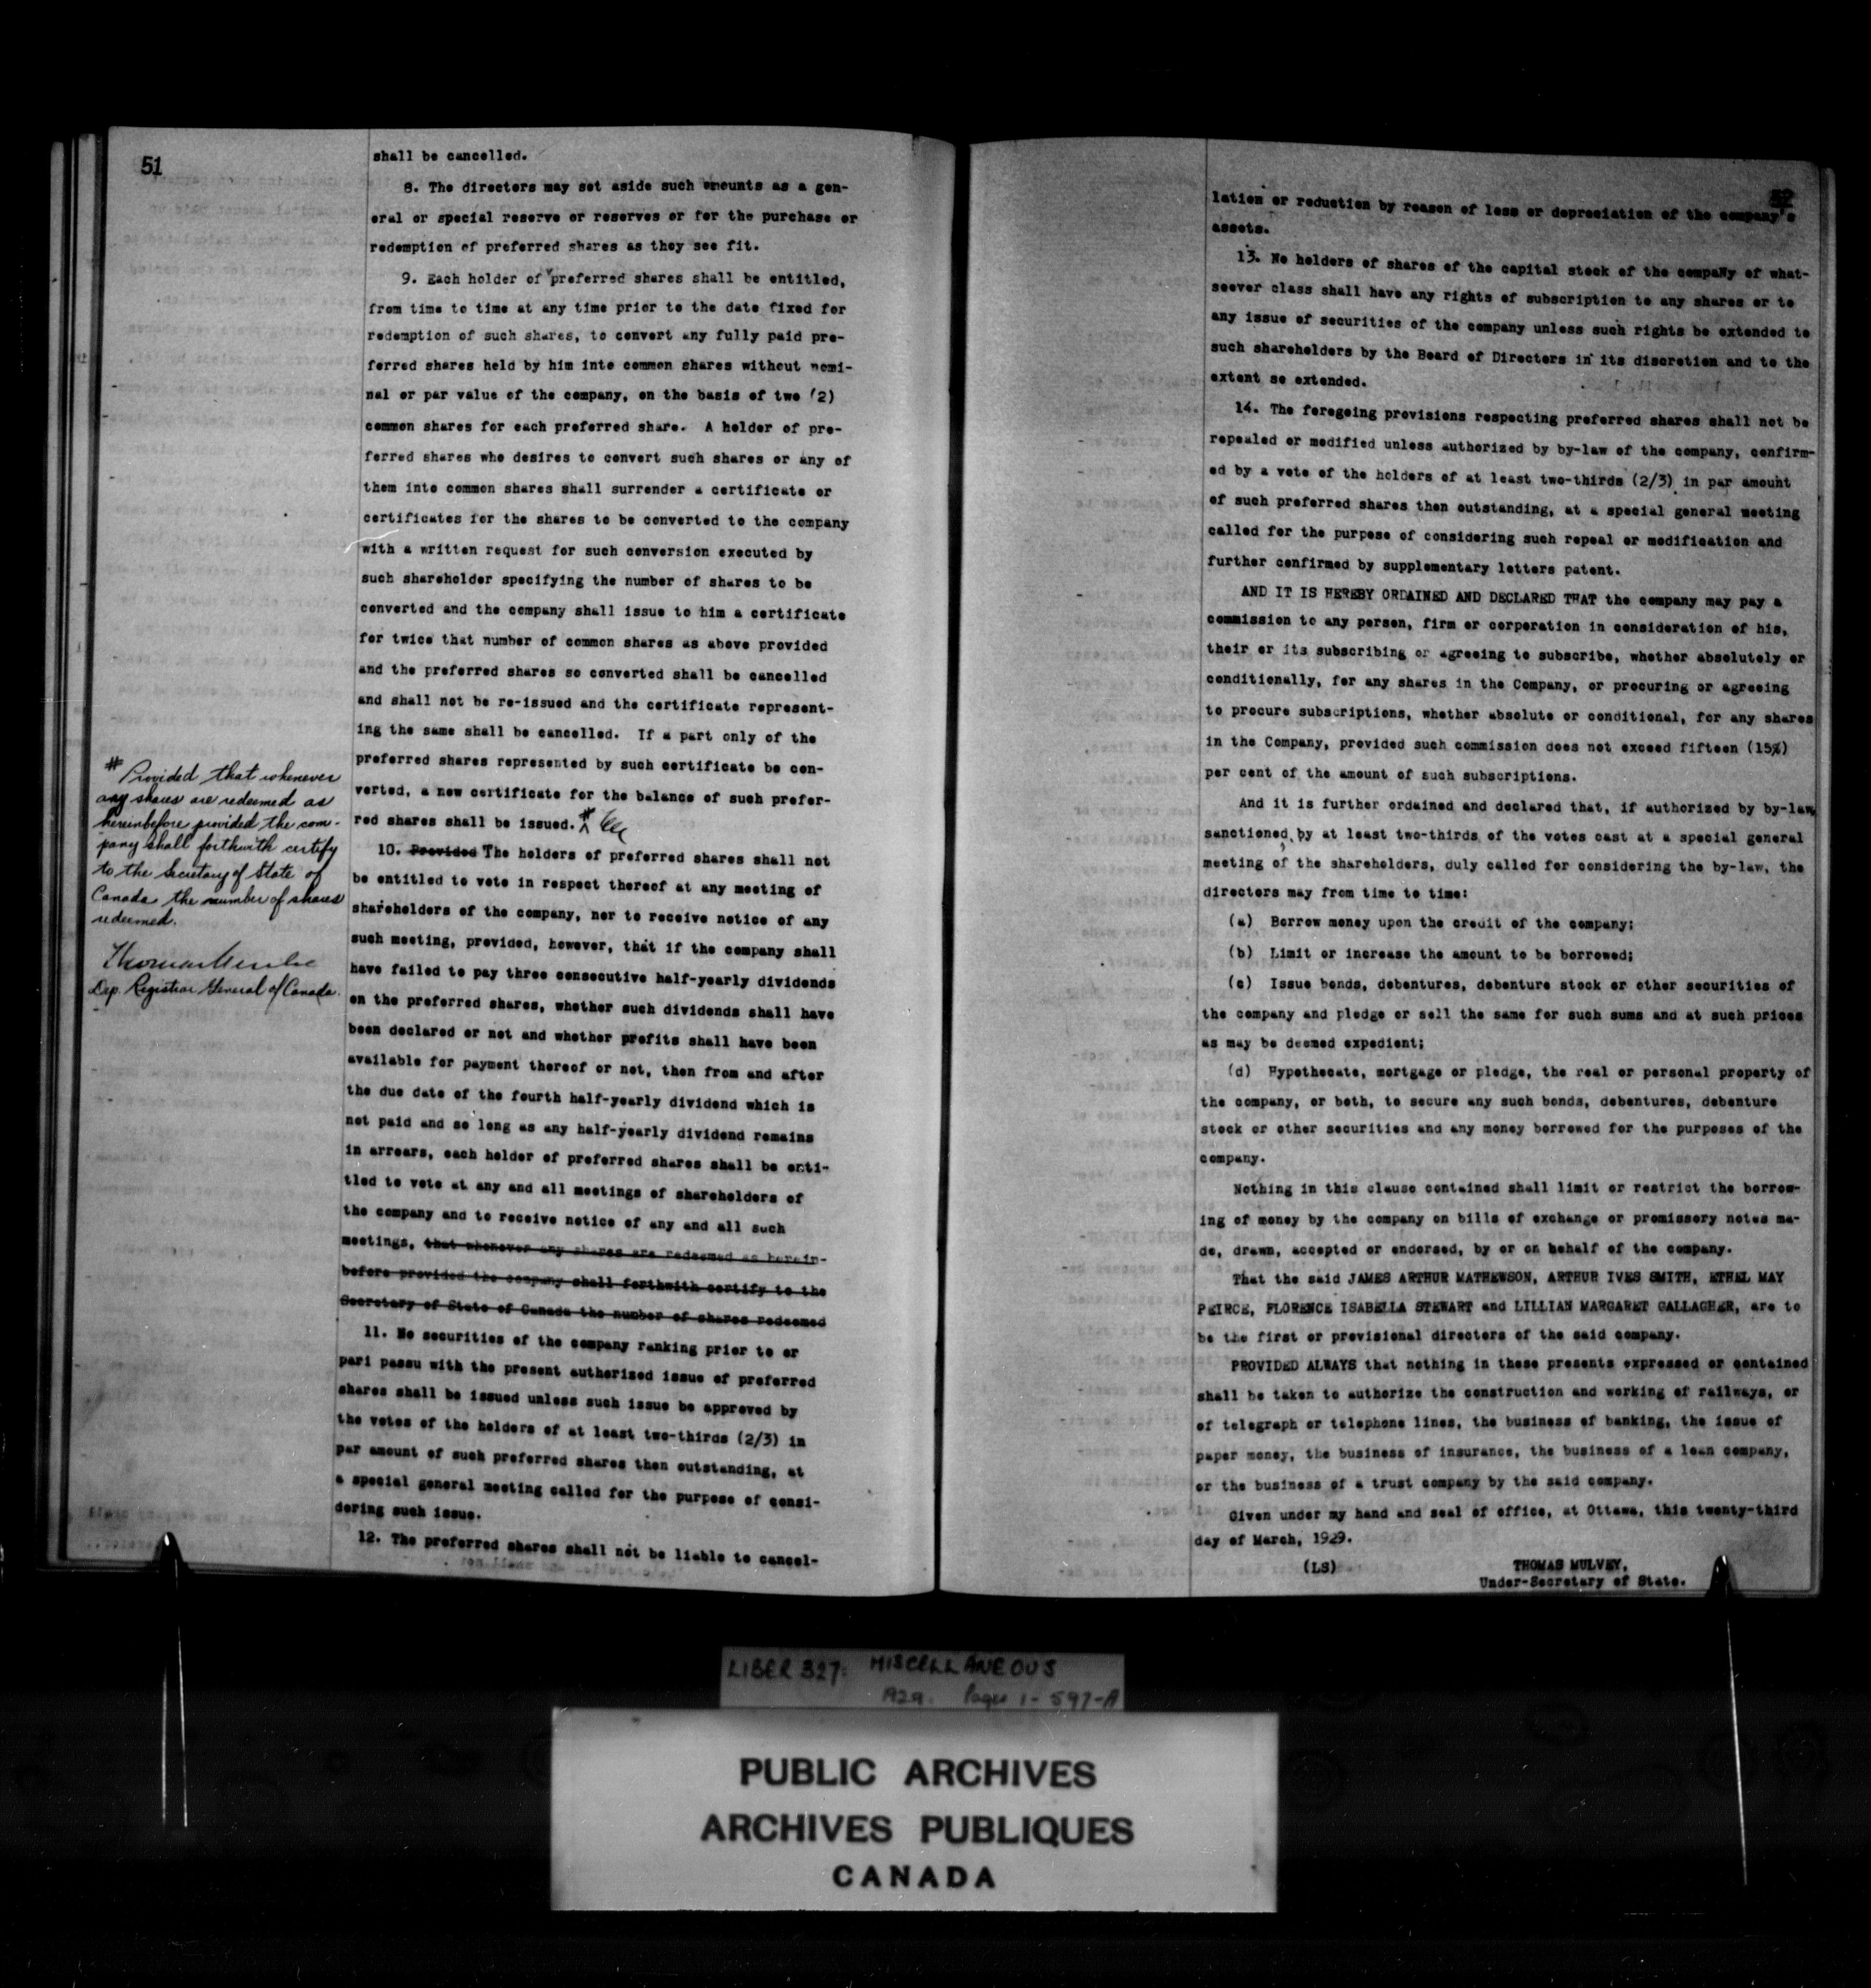 51
shall be cancelled.
8. The directors may set aside such amounts as a gen-
eral or special reserve or reserves or for the purchase or
redemption of preferred shares as they see fit.
9. Each holder of preferred shares shall be entitled,
from time to time at any time prior to the date fixed for
redemption of such shares, to convert any fully paid pre-
ferred shares held by him into common shares without nomi-
nal or par value of the company, on the basis of two (2)
common shares for each preferred share. A holder of pre-
ferred shares who desires to convert such shares or any of
them into common shares shall surrender a certificate or
certificates for the shares to be converted to the company
with a written request for such conversion executed by
such shareholder specifying the number of shares to be
converted and the company shall issue to him a certificate
for twice that number of common shares as above provided
and the preferred shares so converted shall be cancelled
and shall not be re-issued and the certificate represent-
ing the same shall be cancelled. If a part only of the
preferred shares represented by such certificate be con-
verted, a new certificate for the balance of such prefer-
red shares shall be issued. #
10. Provided The holders of preferred shares shall not
be entitled to vote in respect thereof at any meeting of
shareholders of the company, nor to receive notice of any
such meeting, provided, however, that if the company shall
have failed to pay three consecutive half-yearly dividends
on the preferred shares, whether such dividends shall have
been declared or not and whether profits shall have been
available for payment thereof or not, then from and after
the due date of the fourth half-yearly dividend which is
not paid and so long as any half-yearly dividend remains
in arrears, each holder of preferred shares shall be enti-
tled to vote at any and all meetings of shareholders of
the company and to receive notice of any and all such
meetings, that whenever any shares are redeemed as herein-
before provided the company shall forthwith certify to the
Secretary of State of Canada the number of shares redeemed
11. No securities of the company ranking prior to or
pari passu with the present authorized issue of preferred
shares shall be issued unless such issue be approved by
the votes of the holders of at least two-thirds (2/3) in
par amount of such preferred shares then outstanding, at
a special general meeting called for the purpose of consi-
dering such issue.
12. The preferred shares shall not be liable to cancel-
# Provided that whenever
any shares are redeemed as
hereinbefore provided the com-
pany shall forthwith certify
to the Secretary of State of
Canada the number of shares
redeemed.
Dep. Registrar General of Canada.
52
lation or reduction by reason of loss or depreciation of the company's
assets.
13. No holders of shares of the capital stock of the compaNy of what-
soever class shall have any rights of subscription to any shares or to
any issue of securities of the company unless such rights be extended to
such shareholders by the Board of Directors in its discretion and to the
extent so extended.
14. The foregoing provisions respecting preferred shares shall not be
repealed or modified unless authorized by by-law of the company, confirm-
ed by a vote of the holders of at least two-thirds (2/3) in par amount
of such preferred shares then outstanding, at a special general meeting
called for the purpose of considering such repeal or modification and
further confirmed by supplementary letters patent.
AND IT IS HEREBY ORDAINED AND DECLARED THAT the company may pay a
commission to any person, firm or corporation in consideration of his,
their or its subscribing or agreeing to subscribe, whether absolutely or
conditionally, for any shares in the Company, or procuring or agreeing
to procure subscriptions, whether absolute or conditional, for any shares
in the Company, provided such commission does not exceed fifteen (15%)
per cent of the amount of such subscriptions.
And it is further ordained and declared that, if authorized by by-law,
sanctioned by at least two-thirds of the votes cast at a special general
meeting of the shareholders, duly called for considering the by-law, the
directors may from time to time:
(a) Borrow money upon the credit of the company;
(b) Limit or increase the amount to be borrowed;
(c) Issue bonds, debentures, debenture stock or other securities of
the company and pledge or sell the same for such sums and at such prices
as may be deemed expedient;
(d) Hypothecate, mortgage or pledge, the real or personal property of
the company, or both, to secure any such bonds, debentures, debenture
stock or other securities and any money borrowed for the purposes of the
company.
Nothing in this clause contained shall limit or restrict the borrow-
ing of money by the company on bills of exchange or promissory notes ma-
de, drawn, accepted or endorsed, by or on behalf of the company.
That the said JAMES ARTHUR MATHEWSON, ARTHUR IVES SMITH, ETHEL MAY
PEIRCE, FLORENCE ISABELLA STEWART and LILLIAN MARGARET GALLAGHER, are to
be the first or provisional directors of the said company.
PROVIDED ALWAYS that nothing in these presents expressed or contained
shall be taken to authorize the construction and working of railways, or
of telegraph or telephone lines, the business of banking, the issue of
paper money, the business of insurance, the business of a loan company,
or the business of a trust company by the said company.
Given under my hand and seal of office, at Ottawa, this twenty-third
day of March, 1929.
(LS) THOMAS MULVEY,
Under-Secretary of State.
LIBER 327: MISCELLANEOUS
1929. Pages 1-597-A
PUBLIC ARCHIVES
ARCHIVES PUBLIQUES
CANADA